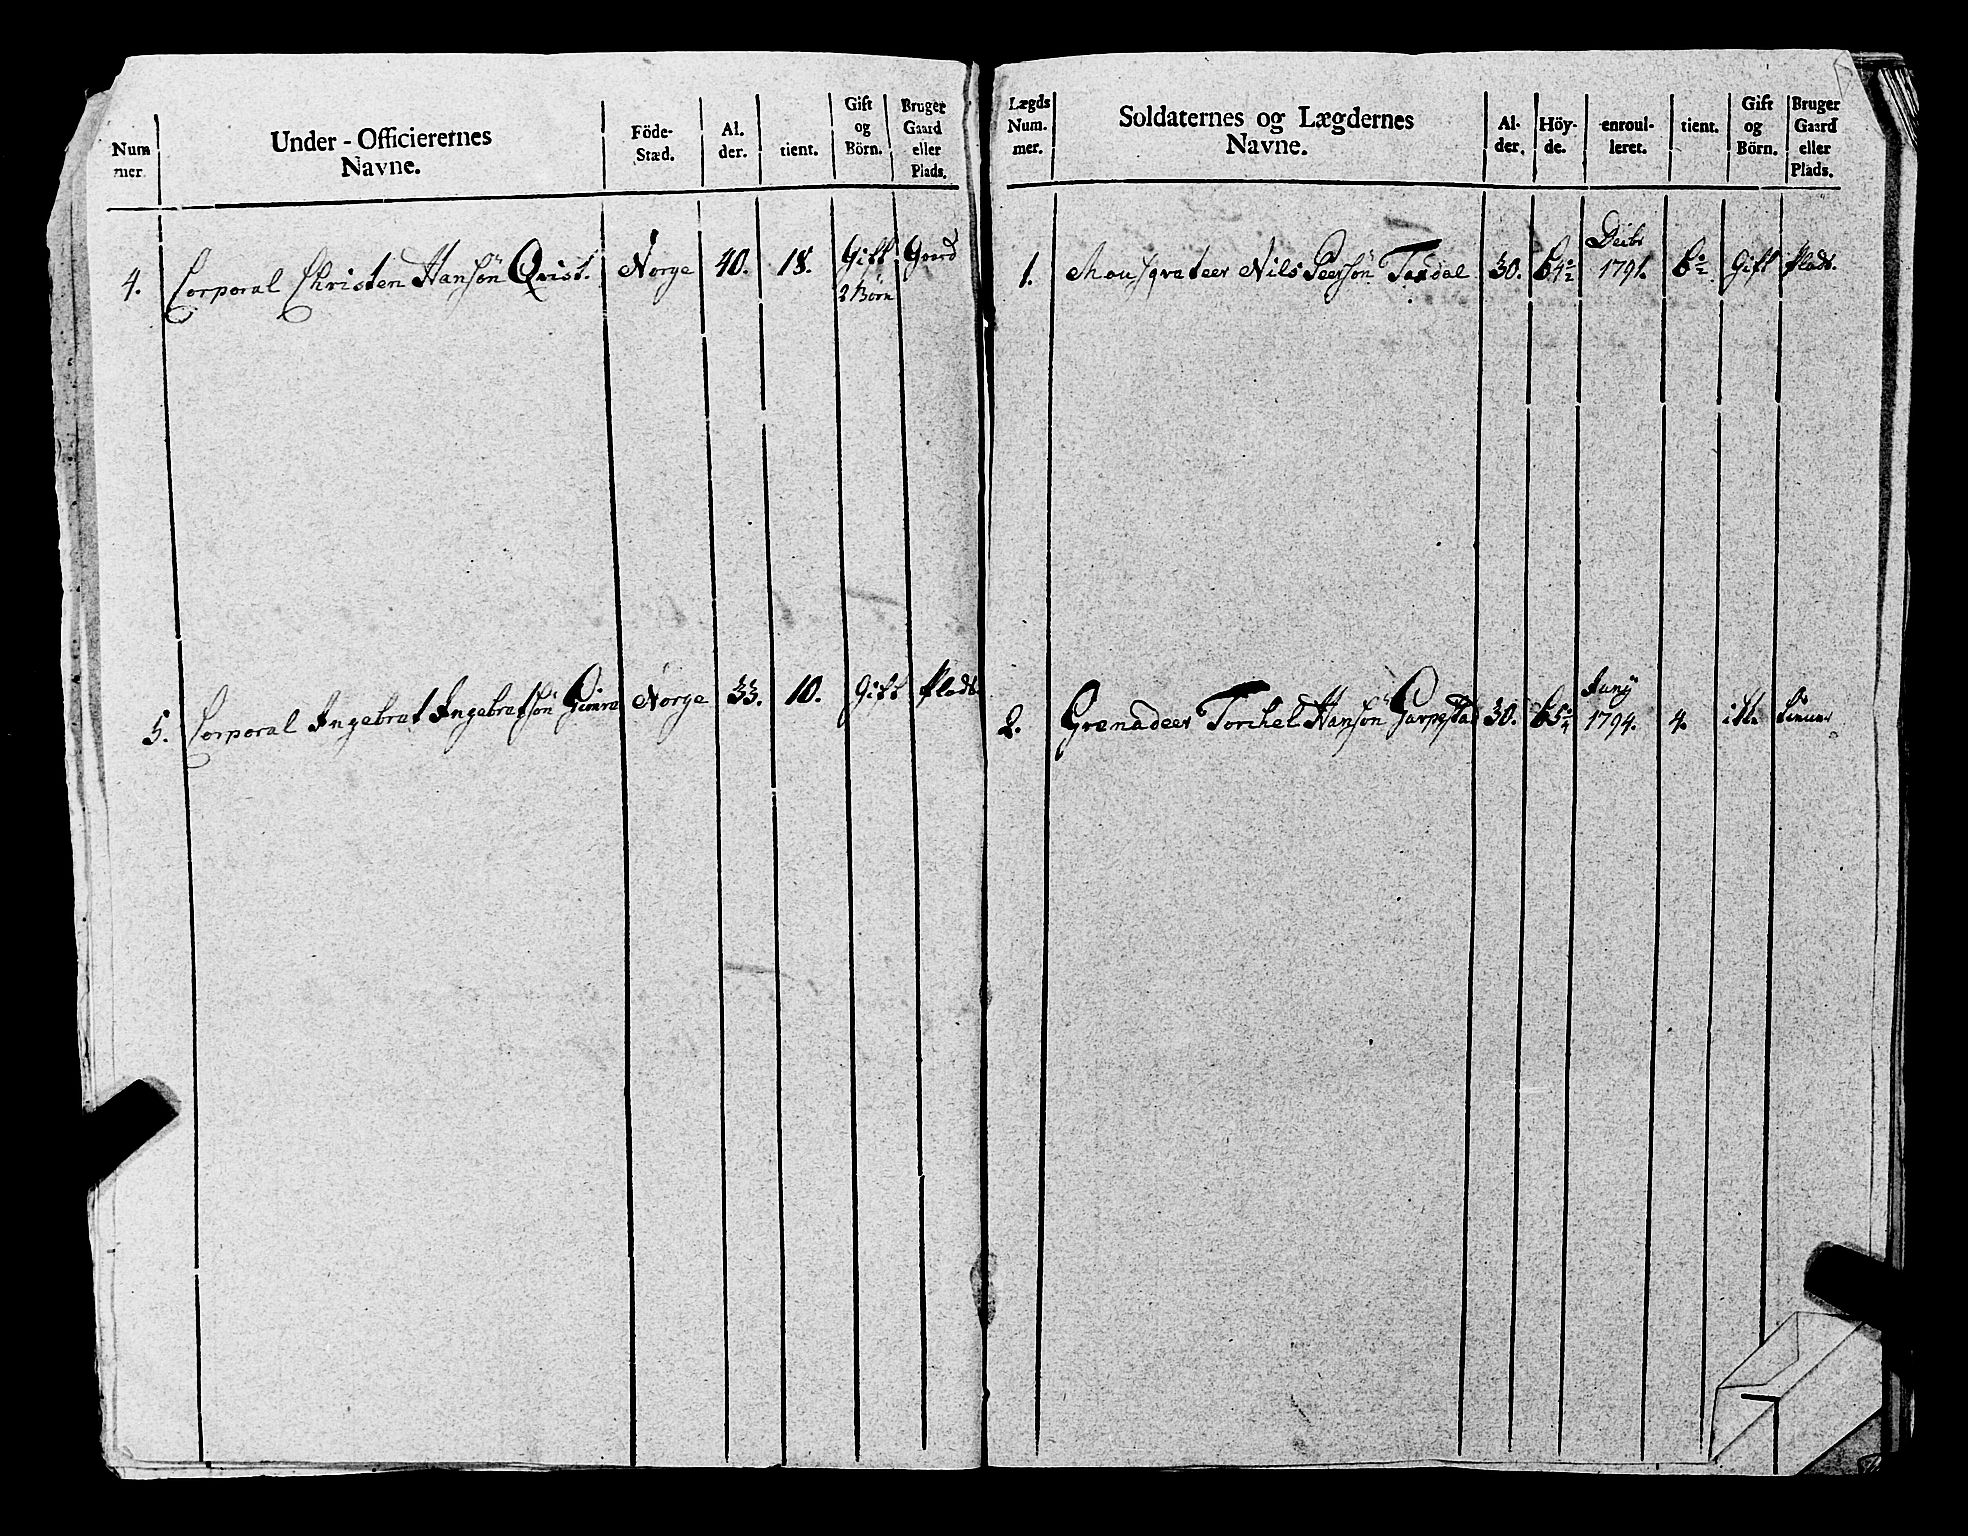 Num
mer.
Under-Officierernes
Navne.
Föde-
Stæd.
Al.
der.
tient.
Gift
og
Börn.
Bruger
Gaard
eller
Plads.
4. Corporal Christen Hansön Qvist. Norge 40. 18. Gift Gaard
2 Börn
5. Corporal Ingebrat Ingebratsön Norge 33. 10. Gift Plads
Lægds
Num.
mer.
Soldaternes og Lægdernes
Navne.
Al-
der.
Höy-
de.
enroul-
leret.
tient.
Gift
og
Börn.
Bruger
Gaard
eller
Plads.
1. Mousqvateer Nils Peersön 30. 1791. Gift Plads.
Juny
2. Grenadeer Torchel Hansön Garpestad 30. 1794. 4. ikke tiener